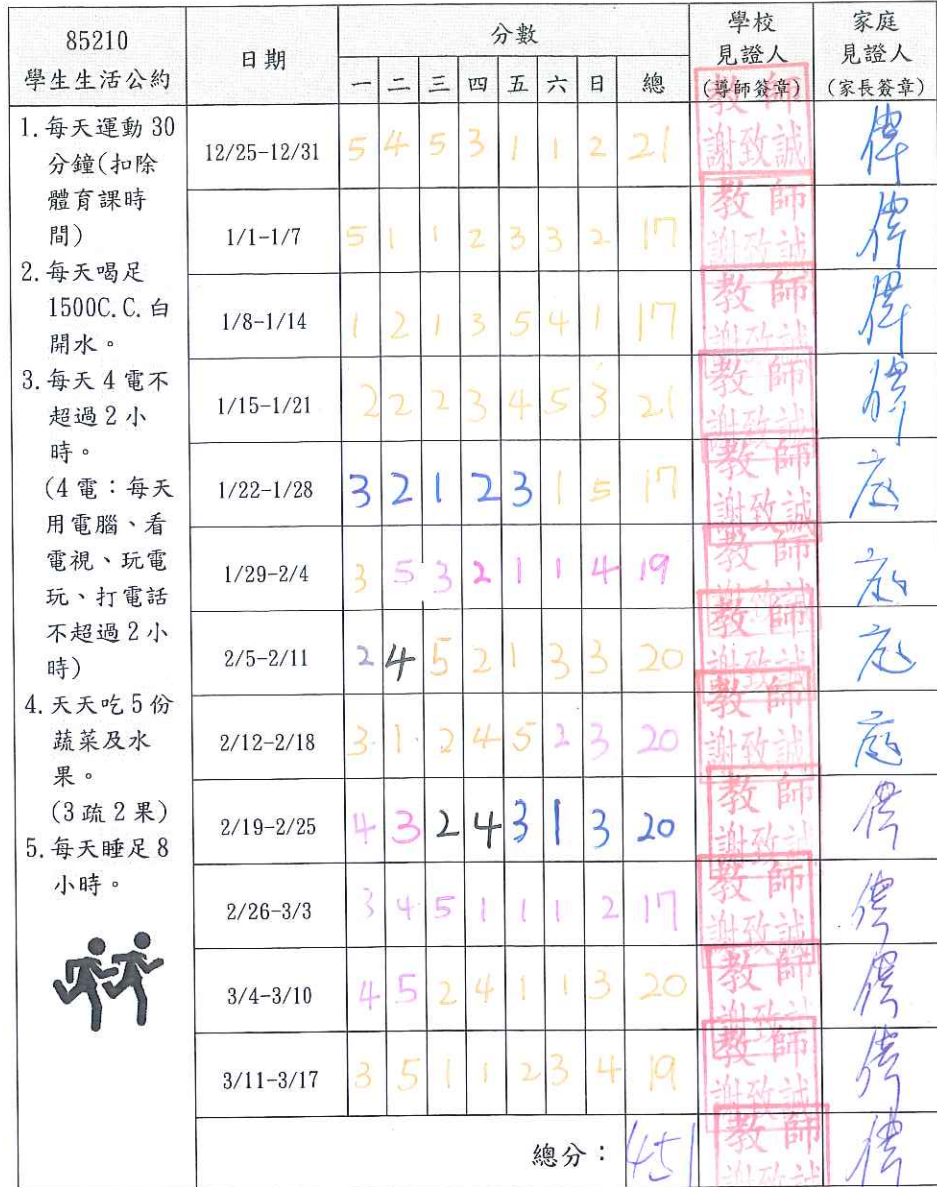 85210
學生生活公約
日期
分數
一 二 三 四 五 六 日 總
學校
見證人
(導師簽章)
家庭
見證人
(家長簽章)
1.每天運動30
分鐘(扣除
體育課時
間)
2.每天喝足
1500C.C.白
開水。
3.每天4電不
超過2小
時。
(4電：每天
用電腦、看
電視、玩電
玩、打電話
不超過2小
時)
4.天天吃5份
蔬菜及水
果。
(3疏2果)
5.每天睡足8
小時。
12/25-12/31 5 4 5 3 1 1 2 21 教師
謝致誠
1/1-1/7 5 1 1 2 3 3 2 17 教師
謝致誠
1/8-1/14 1 2 1 3 5 4 1 17 教師
謝致誠
1/15-1/21 2 2 2 3 4 5 3 21 教師
謝致誠
1/22-1/28 3 2 1 2 3 1 5 17 教師 庭
謝致誠
1/29-2/4 3 5 3 2 1 1 4 19 教師 庭
謝致誠
2/5-2/11 2 4 5 2 1 3 3 20 教師 庭
謝致誠
2/12-2/18 3 1 2 4 5 2 3 20 教師 庭
謝致誠
2/19-2/25 4 3 2 4 3 1 3 20 教師
謝致誠
2/26-3/3 3 4 5 1 1 1 2 17 教師
謝致誠
3/4-3/10 4 5 2 4 1 1 3 20 教師
謝致誠
3/11-3/17 3 5 1 1 2 3 4 19 教師
謝致誠
總分： 451 教師
謝致誠